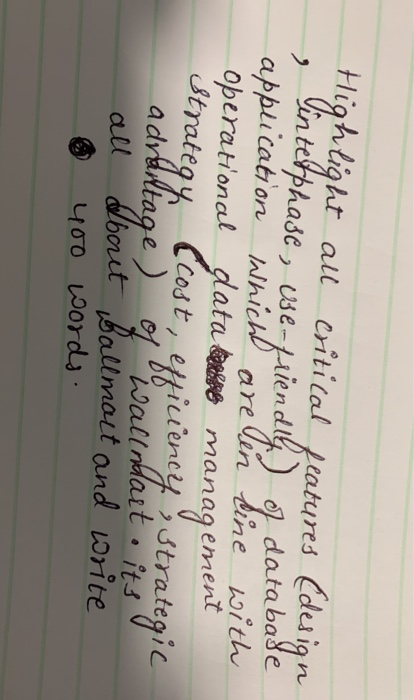 Highlight all critical features (design
, interphase, use-friendly) of database
application which are in line with
operational data management
strategy (cost, efficiency, strategic
advantage) of Wallmart. its
all about Wallmart and write
400 words.